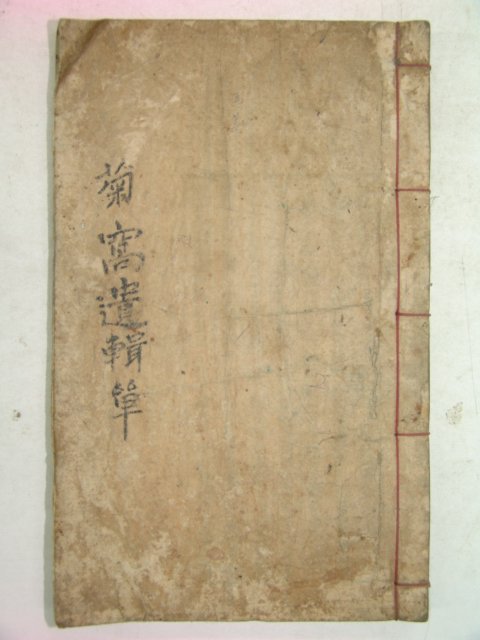 菊窩遺輯單